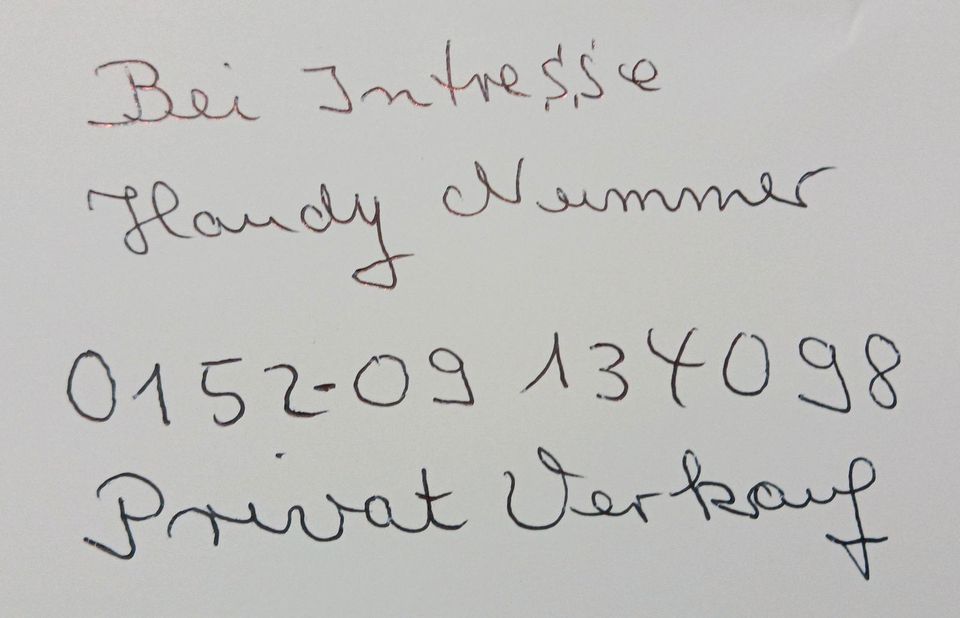 Bei Intresse
Handy Nummer
0152-09 134098
Privat Verkauf